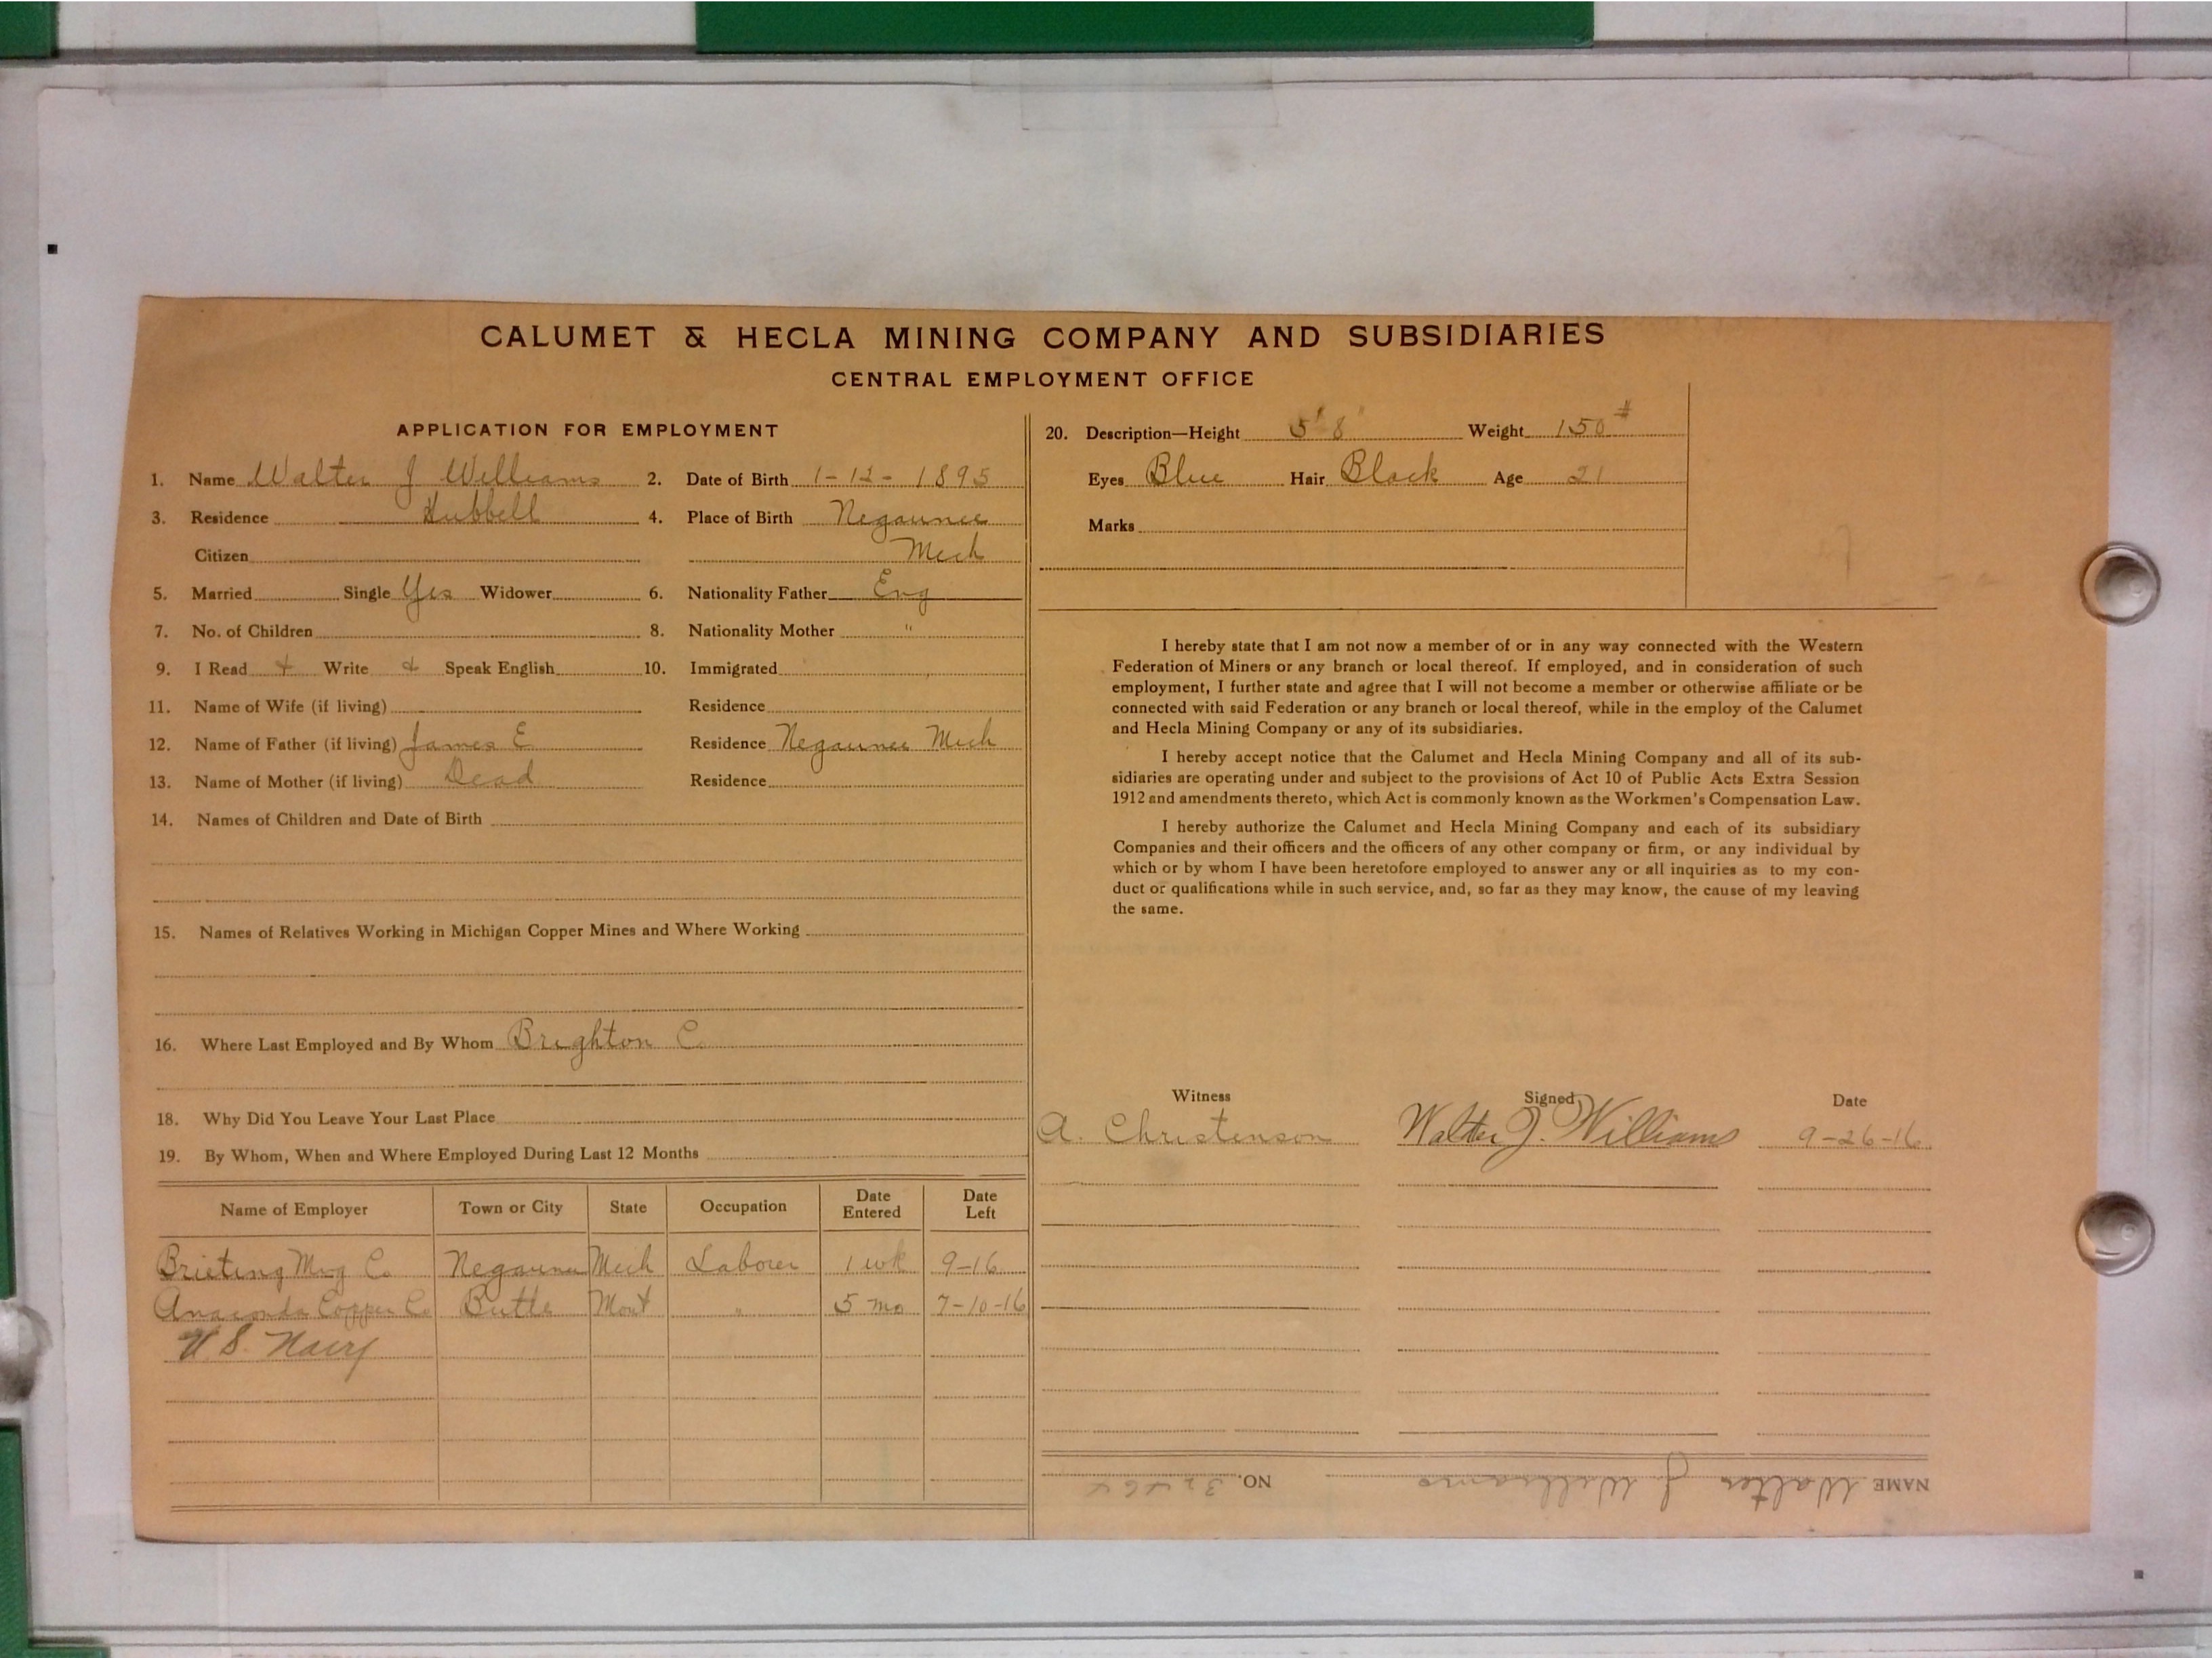 CALUMET & HECLA MINING COMPANY AND SUBSIDIARIES
CENTRAL EMPLOYMENT OFFICE
APPLICATION FOR EMPLOYMENT
1. Name Walter J Williams 2. Date of Birth 1-12-1895
3. Residence Hubbell 4. Place of Birth Negaunee
Citizen Mich
5. Married Single Yes Widower 6. Nationality Father Eng
7. No. of Children 8. Nationality Mother "
9. I Read & Write & Speak English 10. Immigrated
11. Name of Wife (if living) Residence
12. Name of Father (if living) James E Residence Negaunee Mich
13. Name of Mother (if living) Dead Residence
14. Names of Children and Date of Birth
15. Names of Relatives Working in Michigan Copper Mines and Where Working
16. Where Last Employed and By Whom Brighton C.
18. Why Did You Leave Your Last Place
19. By Whom, When and Where Employed During Last 12 Months
Name of Employer Town or City State Occupation Date Entered Date Left
Brieting Mng Co Negaunee Mich Laborer 1 wk 9-16
Anaconda Copper Co Butte Mont " 5 mo 7-10-16
U.S. Navy
20. Description—Height 5' 8" Weight 150#
Eyes Blue Hair Black Age 21
Marks
I hereby state that I am not now a member of or in any way connected with the Western
Federation of Miners or any branch or local thereof. If employed, and in consideration of such
employment, I further state and agree that I will not become a member or otherwise affiliate or be
connected with said Federation or any branch or local thereof, while in the employ of the Calumet
and Hecla Mining Company or any of its subsidiaries.
I hereby accept notice that the Calumet and Hecla Mining Company and all of its sub-
sidiaries are operating under and subject to the provisions of Act 10 of Public Acts Extra Session
1912 and amendments thereto, which Act is commonly known as the Workmen's Compensation Law.
I hereby authorize the Calumet and Hecla Mining Company and each of its subsidiary
Companies and their officers and the officers of any other company or firm, or any individual by
which or by whom I have been heretofore employed to answer any or all inquiries as to my con-
duct or qualifications while in such service, and, so far as they may know, the cause of my leaving
the same.
Witness Signed Date
A. Christenson Walter J. Williams 9-26-16
NAME Walter J Williams NO.